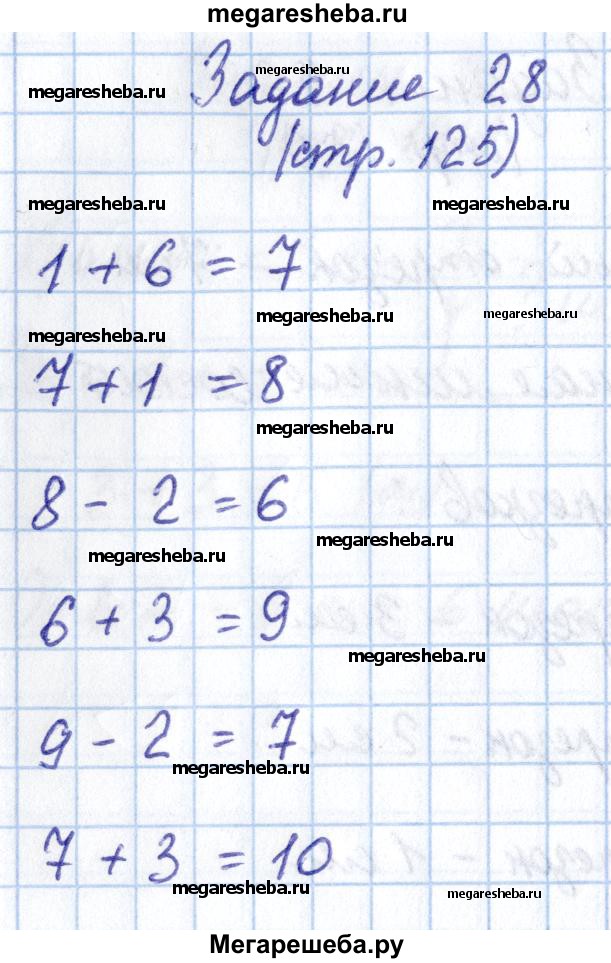 megaresheba.ru
Задание 28
megaresheba.ru
megaresheba.ru
(стр. 125)
megaresheba.ru megaresheba.ru
1 + 6 = 7
megaresheba.ru megaresheba.ru
megaresheba.ru
7 + 1 = 8
megaresheba.ru
8 - 2 = 6
megaresheba.ru
megaresheba.ru
6 + 3 = 9
megaresheba.ru
9 - 2 = 7
megaresheba.ru
7 + 3 = 10
megaresheba.ru megaresheba.ru
Мегарешеба.ру